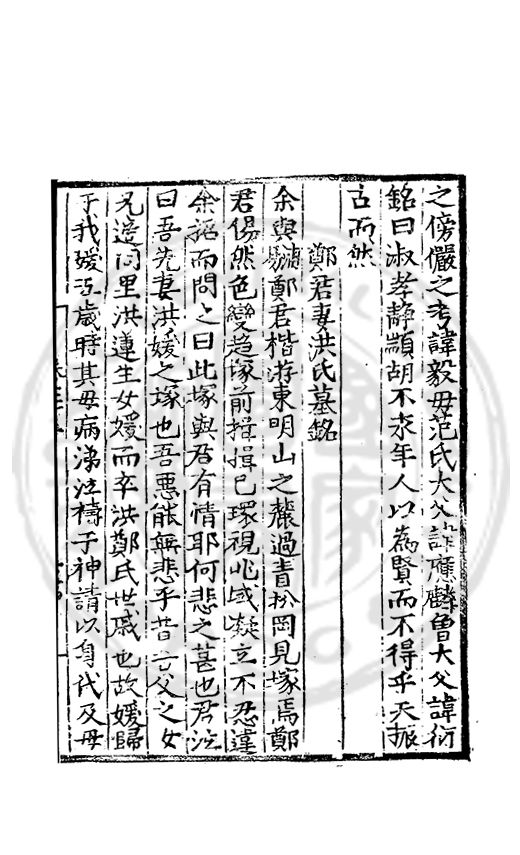 之傍儼之考諱毅母范氏大父諱應麟曾大父諱衍
銘曰淑孝靜顓胡不永年人以為賢而不得乎天振
古而然
鄭君妻洪氏墓銘
余與浦鄭君楷游東明山之麓過青松岡見塚焉鄭
君惕然色變趨塚前揖揖已環視兆域凝立不忍違
余招而問之曰此塚與君有情耶何悲之甚也君泣
曰吾先妻洪媛之塚也吾惡能無悲乎昔吾父之女
兄適同里洪連生女媛而卒洪鄭氏世戚也故媛歸
于我媛 歲時其母病涕泣禱于神請以身代及母